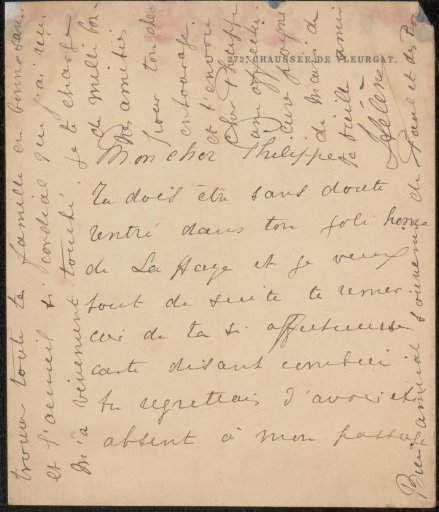 272, CHAUSSÉE DE VLEURGAT.
Mon cher Philippe
Tu dois être sans doute
rentré dans ton joli home
de La Haye et je veux
tout de suite te remer
cier de ta si affectueuse
carte disant combien
tu regrettais d'avoir été
absent à mon passage
trouver toute ta famille en bonne santé
et l'accueil si cordial que j'ai reçu
m'a vivement touché. Je te charge
de mille bonnes
amitiés
pour ton cher
entourage
et t'envoie
cher Philippe
mon affection
à laquelle
de Maris
ta vieille amie
Hélène
Bien amical souvenir de Paul et des